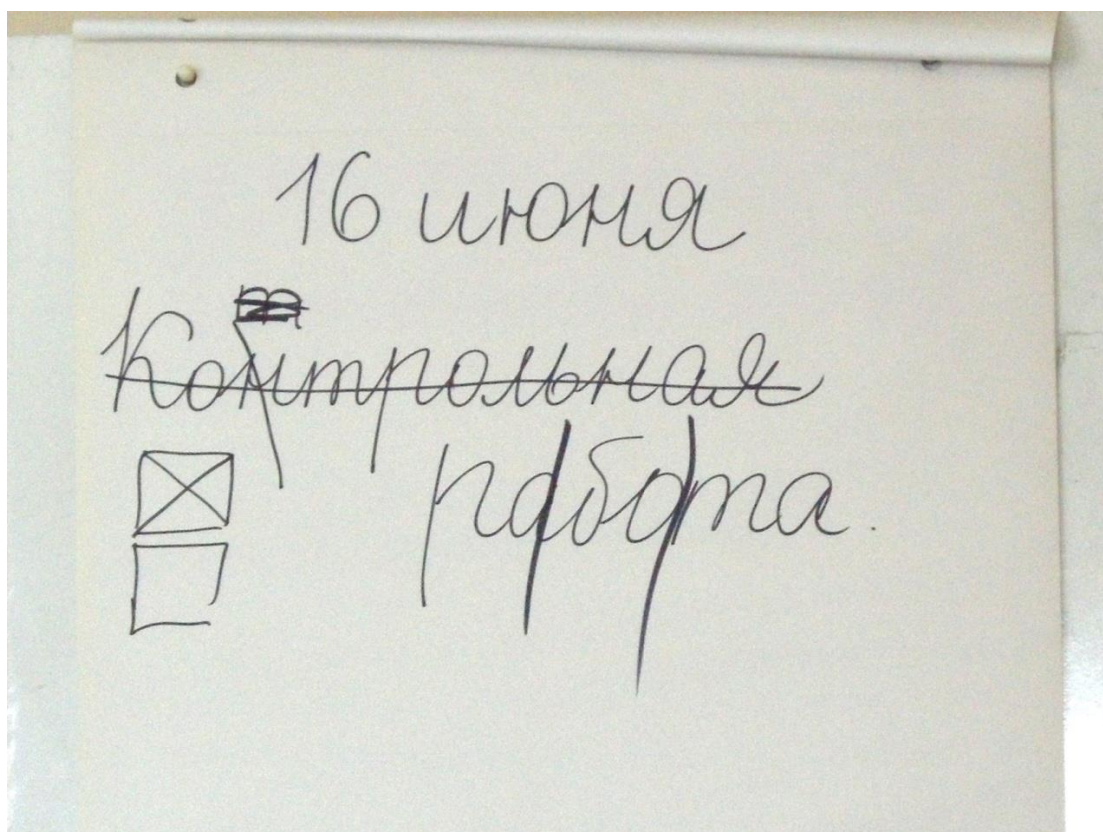 16 июня
Контрольная
работа.